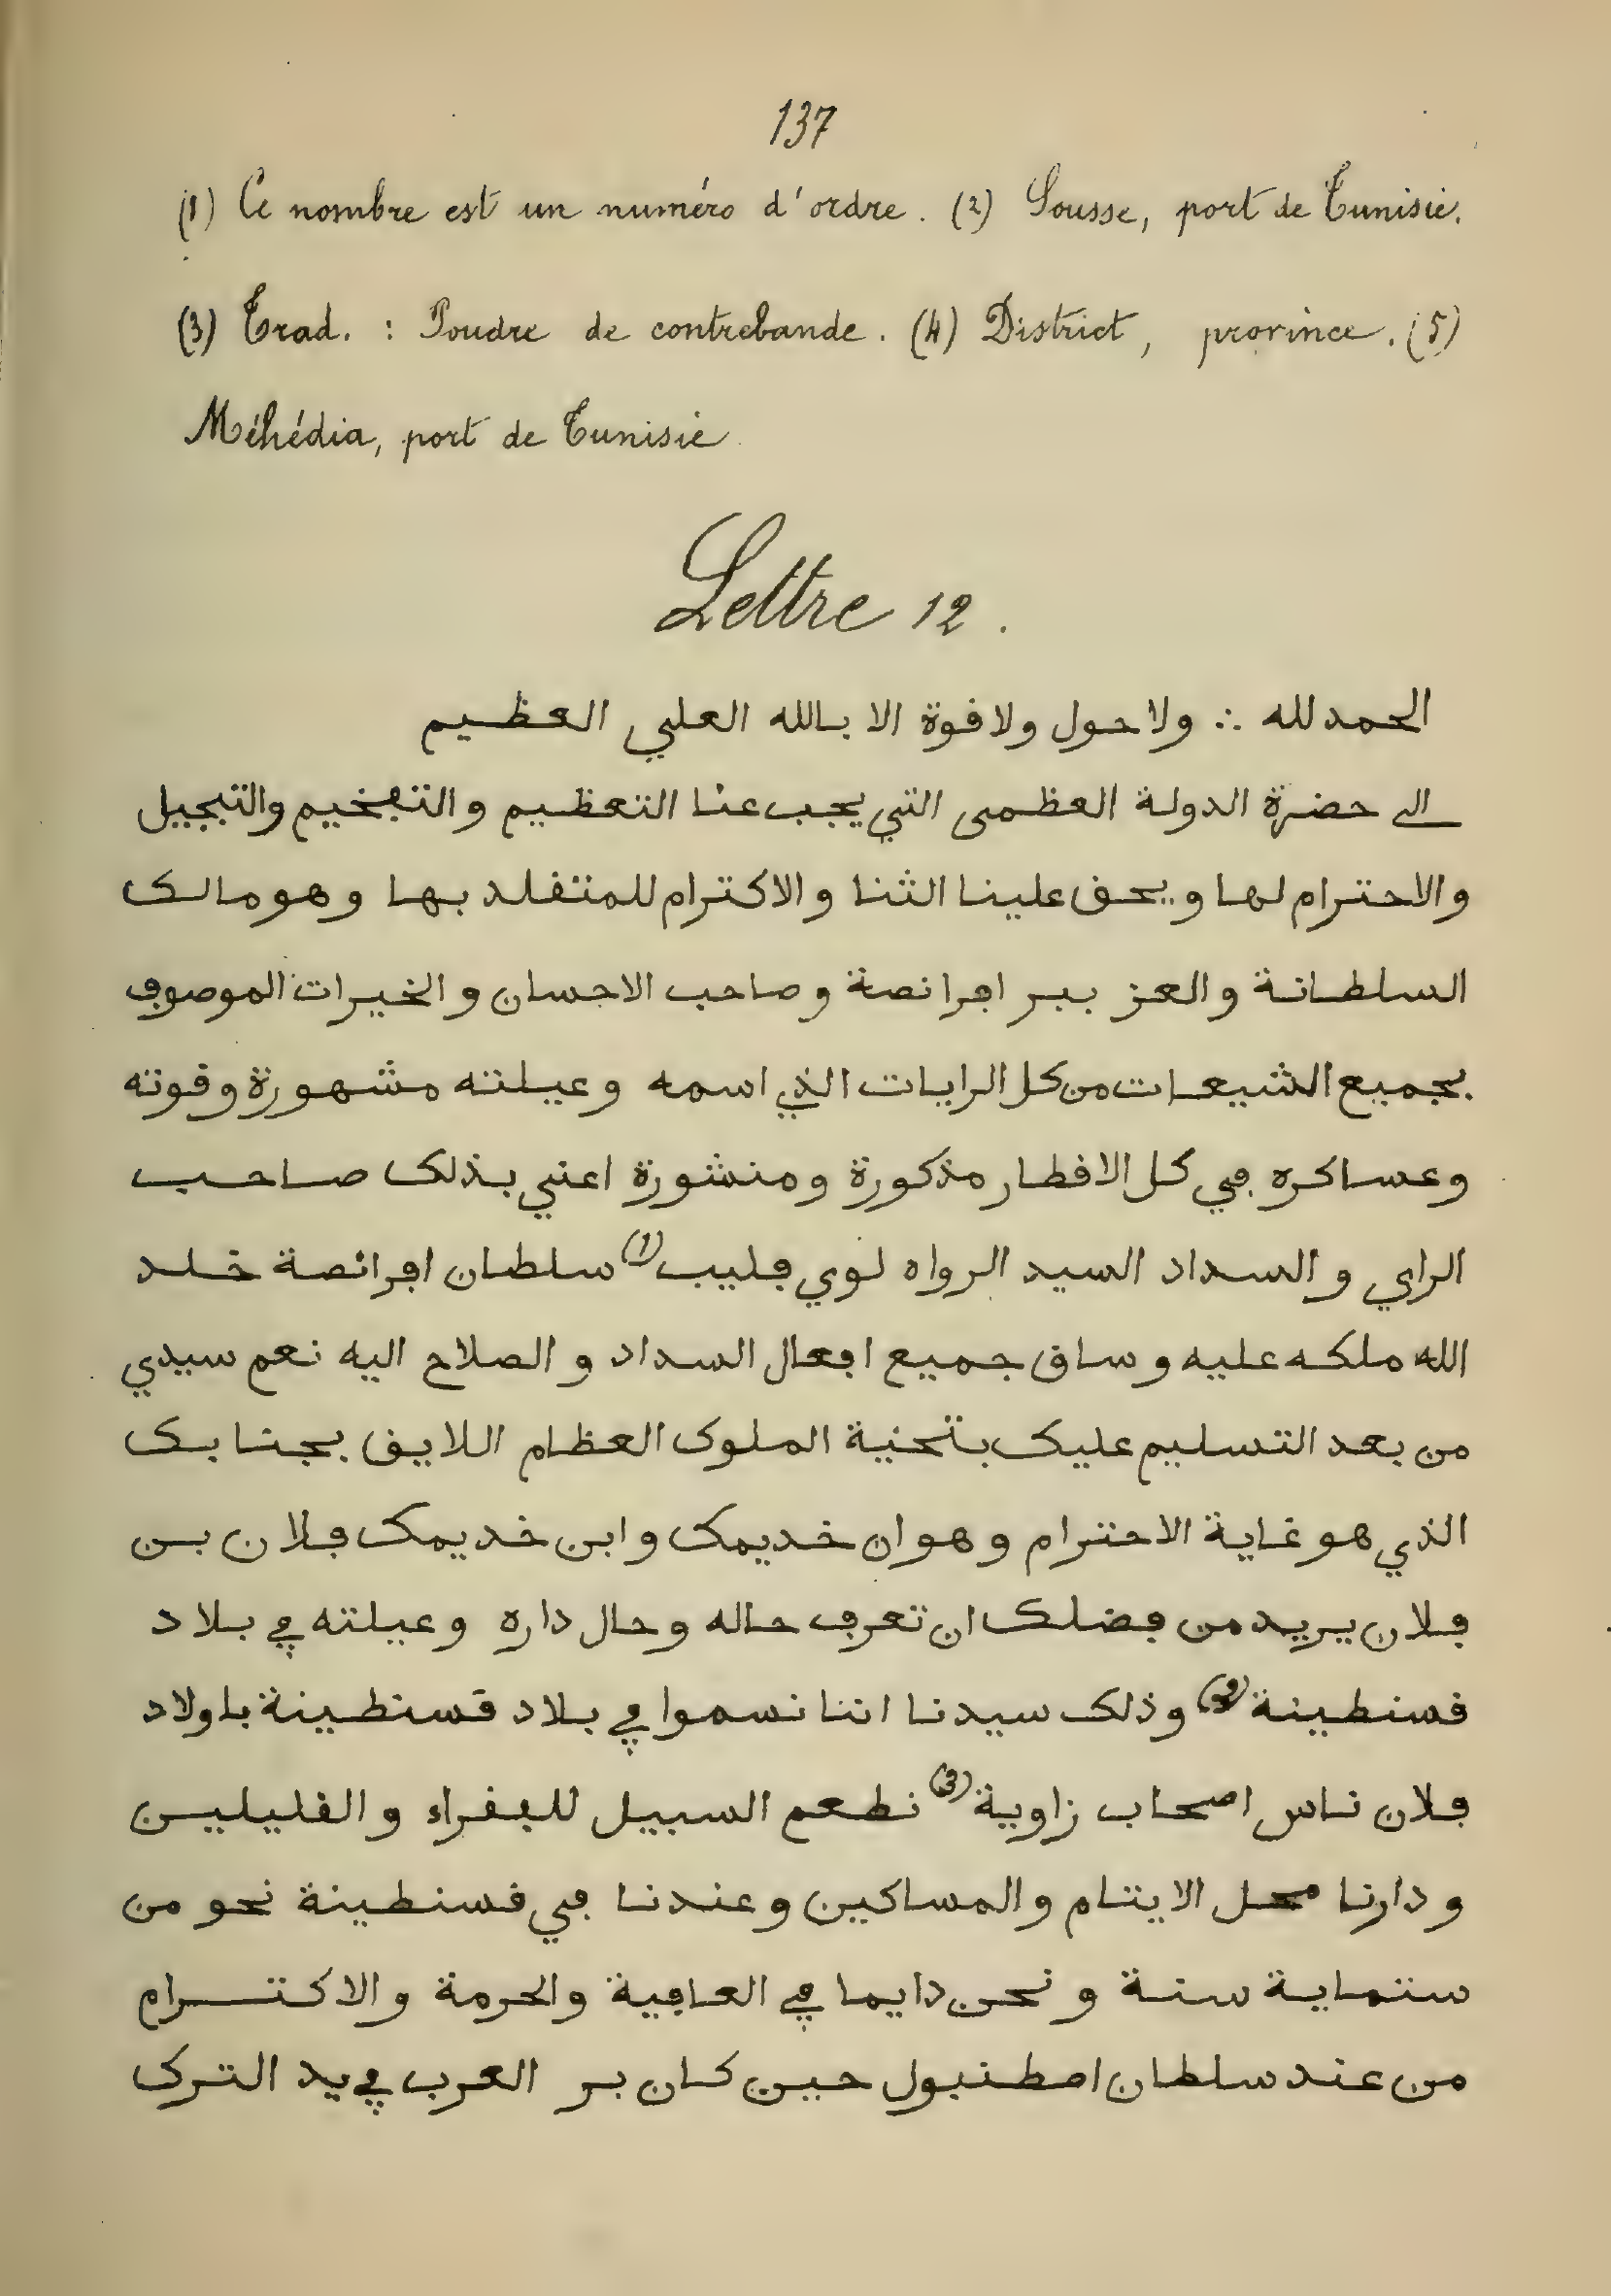 137
(1) Ce nombre est un numéro d'ordre. (2) Sousse, port de Tunisie.
(3) Trad. : Poudre de contrebande. (4) District, province. (5)
Méhédia, port de Tunisie
Lettre 12.
الحمد لله ∴ ولا حول ولا ڧوة الا بالله العلي العظيم
الى حضرة الدولة العظمى التي يجب عنا التعظيم والتڢخيم والتبجيل
والاحترام لها ويحڧ علينا الثنا والاكترام للمتڧلد بها وهو مالك
السلطانة والعز ببر اڢرانصة وصاحب الاحسان والخيرات الموصوڢ
بجميع الشيعات من كل الرايات الذي اسمه وعيلته مشهورة وڧوته
وعساكره ڢي كل الاڧطار مذكورة ومنشورة اعني بذلك صاحب
الراي والسداد السيد الرواه لوي ڢليب (1) سلطان اڢرانصة خلد
الله ملكه عليه وساڧ جميع اڢعال السداد والصلاح اليه نعم سيدي
من بعد التسليم عليك بتحية الملوك العظام اللايڧ بجنابك
الذي هو غاية الاحترام وهو ان خديمك وابن خديمك ڢلان بن
ڢلان يريد من ڢضلك ان تعرڢ حاله وحال داره وعيلته ڢي بلاد
ڧسنطينة (2) وذلك سيدنا اننا نسموا ڢي بلاد ڧسنطينة باولاد
ڢلان ناس اصحاب زاوية (3) نطعم السبيل للڢڧراء والڧليلين
ودارنا محل الايتام والمساكين وعندنا ڢي ڧسنطينة نحو من
ستماية سنة ونحن دايما ڢي العاڢية والحرمة والاكترام
من عند سلطان اصطنبول حين كان بر العرب ڢي يد الترك